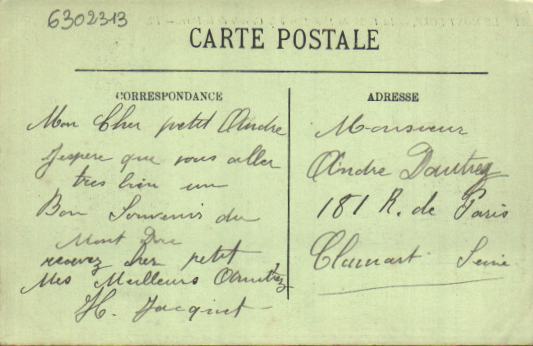 6302313
CARTE POSTALE
CORRESPONDANCE
Mon Cher petit Andre
Jespere que vous aller
tres bien un
Bon Souvenir du
Mont Dore
recevez cher petit
Mes Meilleurs Amitiez
H. Jacquet
ADRESSE
Monsieur
Andre Dautrey
181 R. de Paris
Clamart Seine